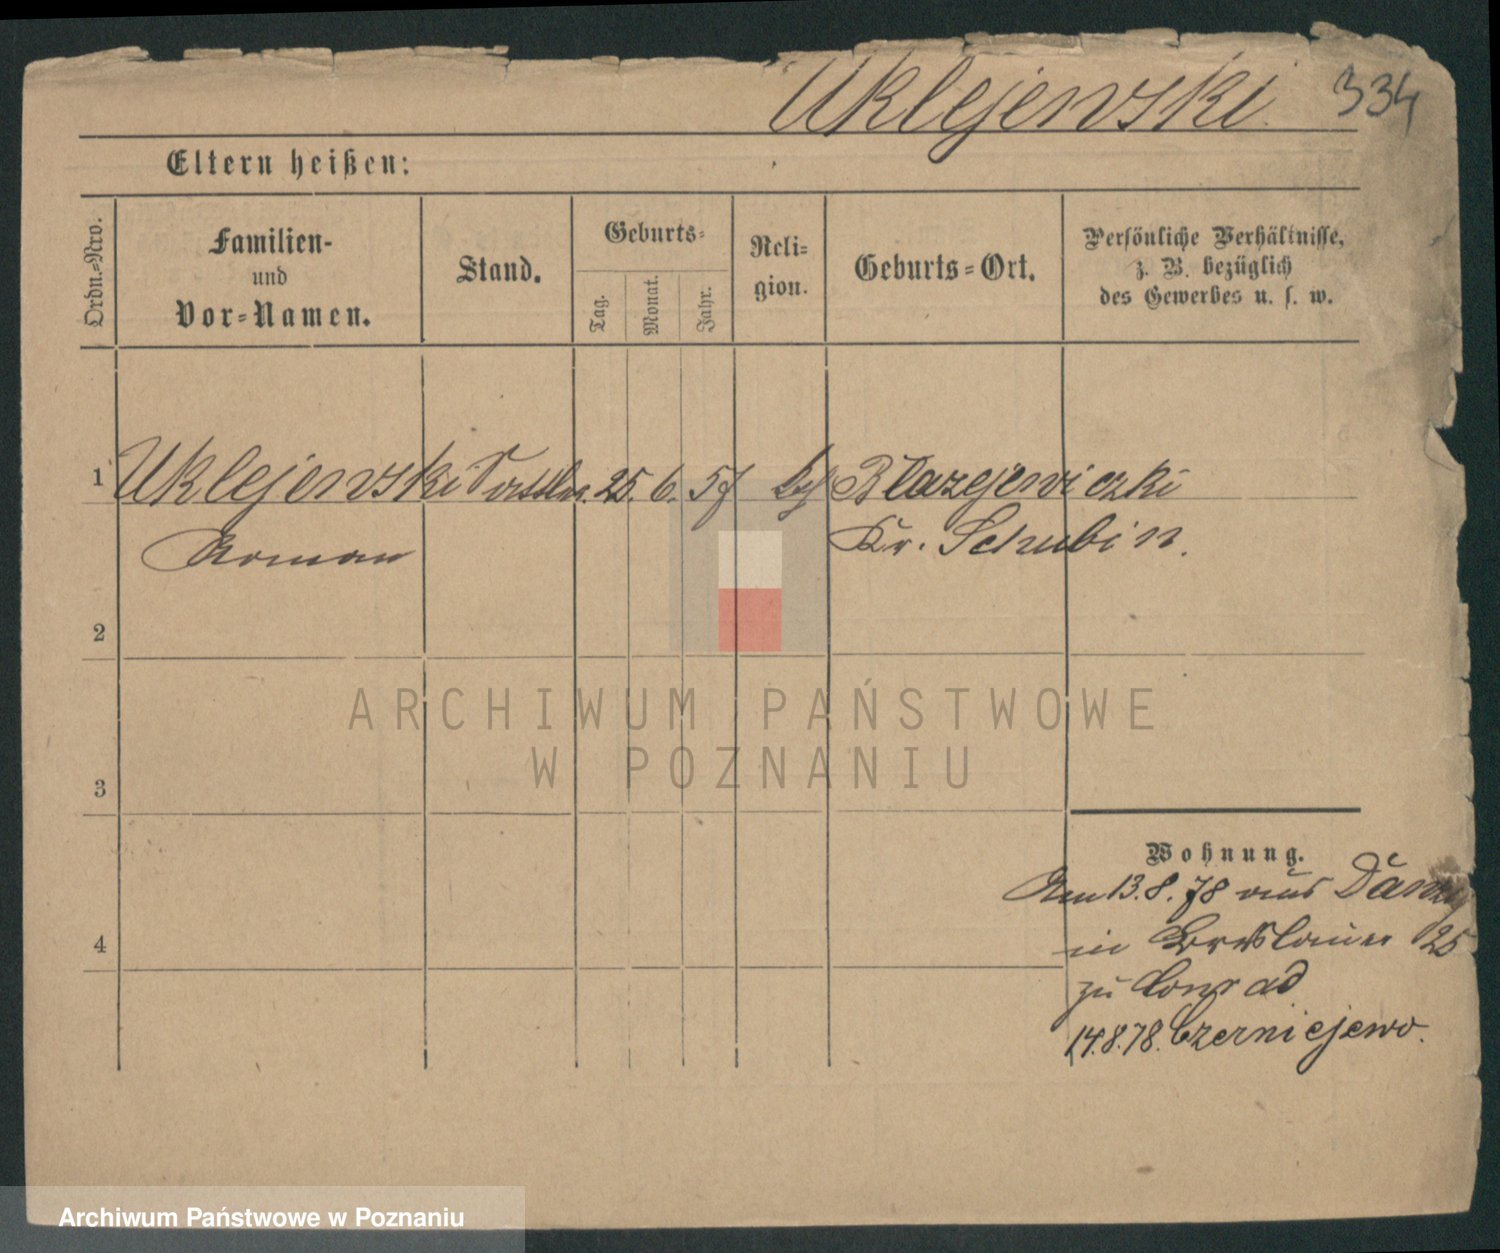 Uklejewski. 334
Eltern heißen:
Ordn.-Nro.
Familien-
und
Vor-Namen.
Stand.
Geburts-
Tag.
Monat.
Jahr.
Reli-
gion.
Geburts-Ort.
Persönliche Verhältnisse,
z. B. bezüglich
des Gewerbes u. s. w.
1 Uklejewski 25. 6. 57 Blazejewiczki
Roman Kr. Schubin.
2
ARCHIWUM PAŃSTWOWE
W POZNANIU
3
Wohnung.
Am 13.8.78 aus Danzig
4
in Breslauer 25
zu Conrad
14.8.78. Czerniejewo.
Archiwum Państwowe w Poznaniu